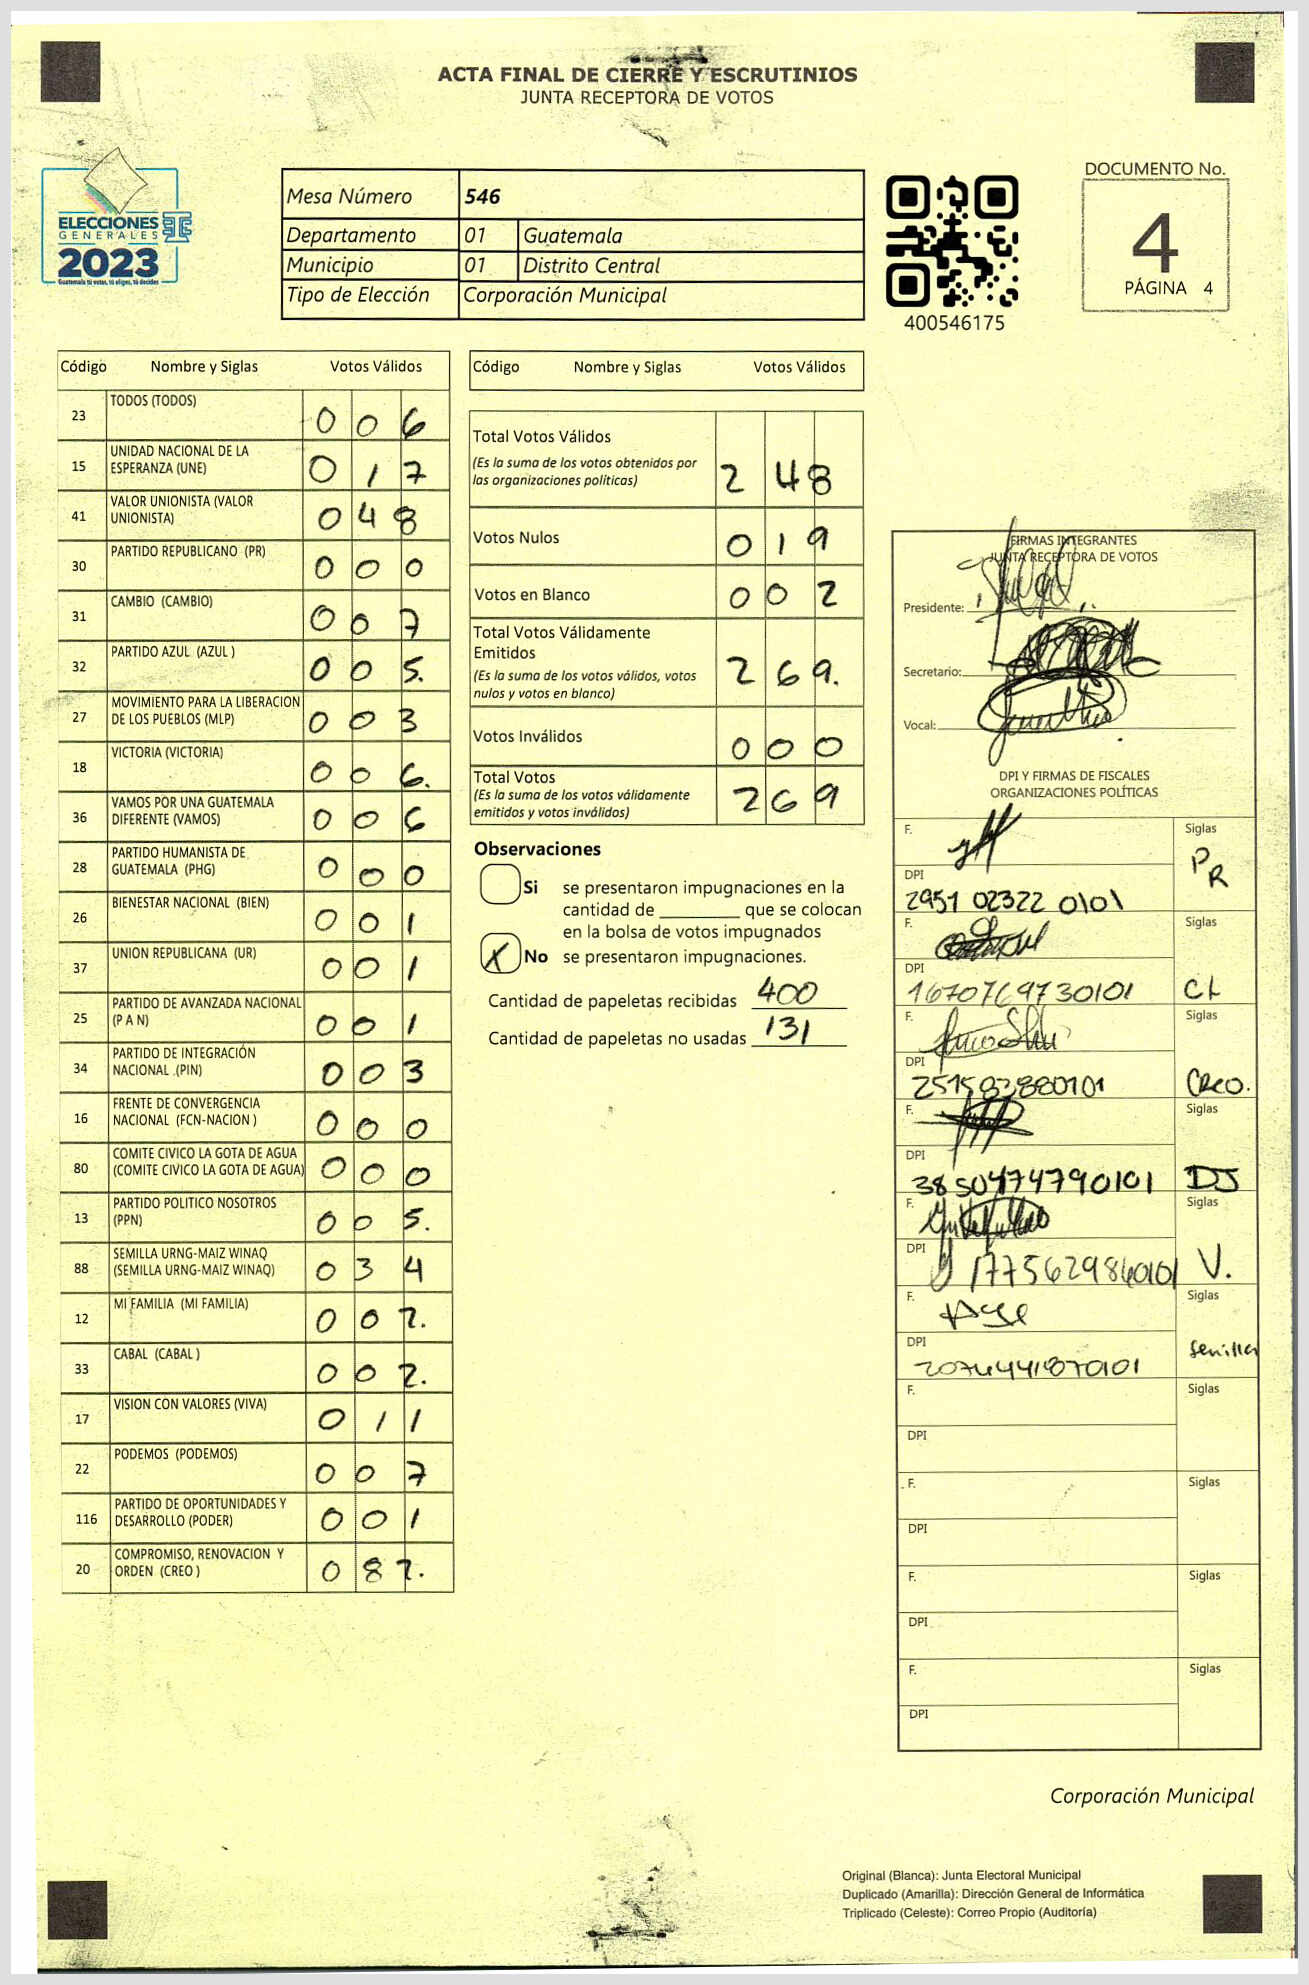 ACTA FINAL DE CIERRE Y ESCRUTINIOS
JUNTA RECEPTORA DE VOTOS
ELECCIONES
GENERALES
2023
Guatemala tú votas, tú eliges, tú decides
Mesa Número 546
Departamento 01 Guatemala
Municipio 01 Distrito Central
Tipo de Elección Corporación Municipal
400546175
DOCUMENTO No.
4
PÁGINA 4
Código Nombre y Siglas Votos Válidos
23 TODOS (TODOS) 0 0 6
15 UNIDAD NACIONAL DE LA
ESPERANZA (UNE) 0 1 7
41 VALOR UNIONISTA (VALOR
UNIONISTA) 0 4 8
30 PARTIDO REPUBLICANO (PR) 0 0 0
31 CAMBIO (CAMBIO) 0 0 7
32 PARTIDO AZUL (AZUL ) 0 0 5.
27 MOVIMIENTO PARA LA LIBERACION
DE LOS PUEBLOS (MLP) 0 0 3
18 VICTORIA (VICTORIA) 0 0 6.
36 VAMOS POR UNA GUATEMALA
DIFERENTE (VAMOS) 0 0 6
28 PARTIDO HUMANISTA DE
GUATEMALA (PHG) 0 0 0
26 BIENESTAR NACIONAL (BIEN) 0 0 1
37 UNION REPUBLICANA (UR) 0 0 1
25 PARTIDO DE AVANZADA NACIONAL
(P A N) 0 0 1
34 PARTIDO DE INTEGRACIÓN
NACIONAL .(PIN) 0 0 3
16 FRENTE DE CONVERGENCIA
NACIONAL (FCN-NACION ) 0 0 0
80 COMITE CIVICO LA GOTA DE AGUA
(COMITE CIVICO LA GOTA DE AGUA) 0 0 0
13 PARTIDO POLITICO NOSOTROS
(PPN) 0 0 5.
88 SEMILLA URNG-MAIZ WINAQ
(SEMILLA URNG-MAIZ WINAQ) 0 3 4
12 MI FAMILIA (MI FAMILIA) 0 0 2.
33 CABAL (CABAL ) 0 0 2.
17 VISION CON VALORES (VIVA) 0 1 1
22 PODEMOS (PODEMOS) 0 0 7
116 PARTIDO DE OPORTUNIDADES Y
DESARROLLO (PODER) 0 0 1
20 COMPROMISO, RENOVACION Y
ORDEN (CREO ) 0 8 2.
Código Nombre y Siglas Votos Válidos
Total Votos Válidos
(Es la suma de los votos obtenidos por
las organizaciones políticas) 2 4 8
Votos Nulos 0 1 9
Votos en Blanco 0 0 2
Total Votos Válidamente
Emitidos
(Es la suma de los votos válidos, votos
nulos y votos en blanco) 2 6 9.
Votos Inválidos 0 0 0
Total Votos
(Es la suma de los votos válidamente
emitidos y votos inválidos) 2 6 9
Observaciones
Si se presentaron impugnaciones en la
cantidad de ________ que se colocan
en la bolsa de votos impugnados
X No se presentaron impugnaciones.
Cantidad de papeletas recibidas 400
Cantidad de papeletas no usadas 131
FIRMAS INTEGRANTES
JUNTA RECEPTORA DE VOTOS
Presidente:
Secretario:
Vocal:
DPI Y FIRMAS DE FISCALES
ORGANIZACIONES POLÍTICAS
F. Siglas
PR
DPI
2951 02322 0101
F. Siglas
DPI
1670769730101 CL
F. Siglas
DPI
251583880101 Creo.
F. Siglas
DPI
3850474790101 DJ
F. Siglas
DPI
1775629860101 V.
F. Siglas
DPI
2074441870101 Semilla
F. Siglas
DPI
F. Siglas
DPI
F. Siglas
DPI
F. Siglas
DPI
Corporación Municipal
Original (Blanca): Junta Electoral Municipal
Duplicado (Amarilla): Dirección General de Informática
Triplicado (Celeste): Correo Propio (Auditoría)